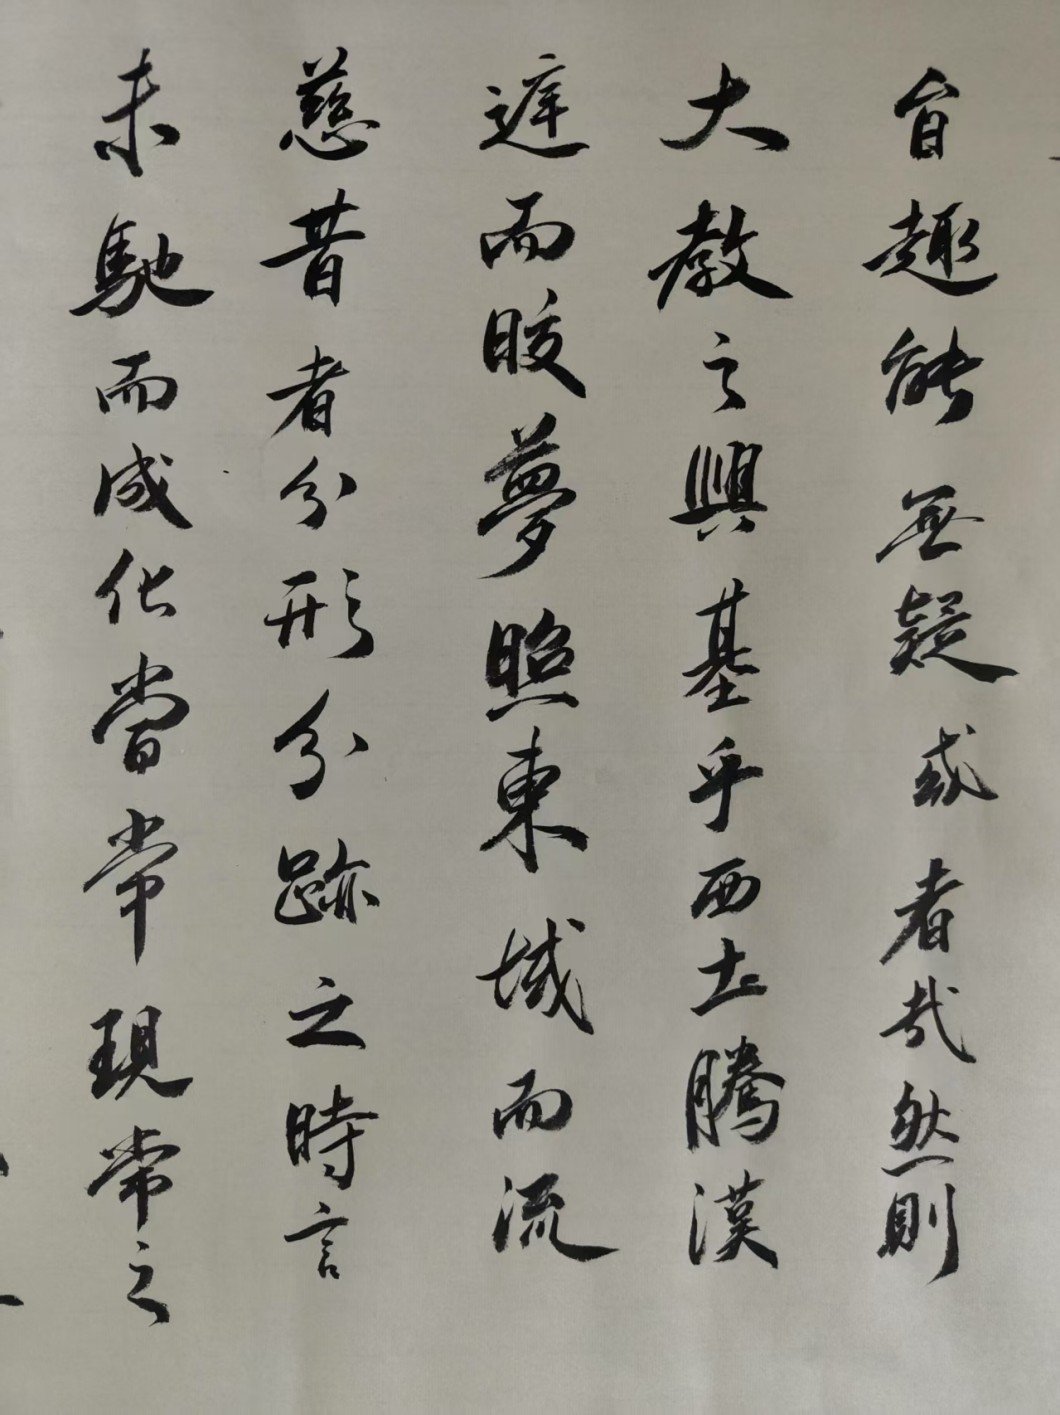 旨趣能無疑或者哉然則
大教之興基乎西土騰漢
遮而晈夢照東域而流
慈昔者分形分跡之時言
未馳而成化當常現常之